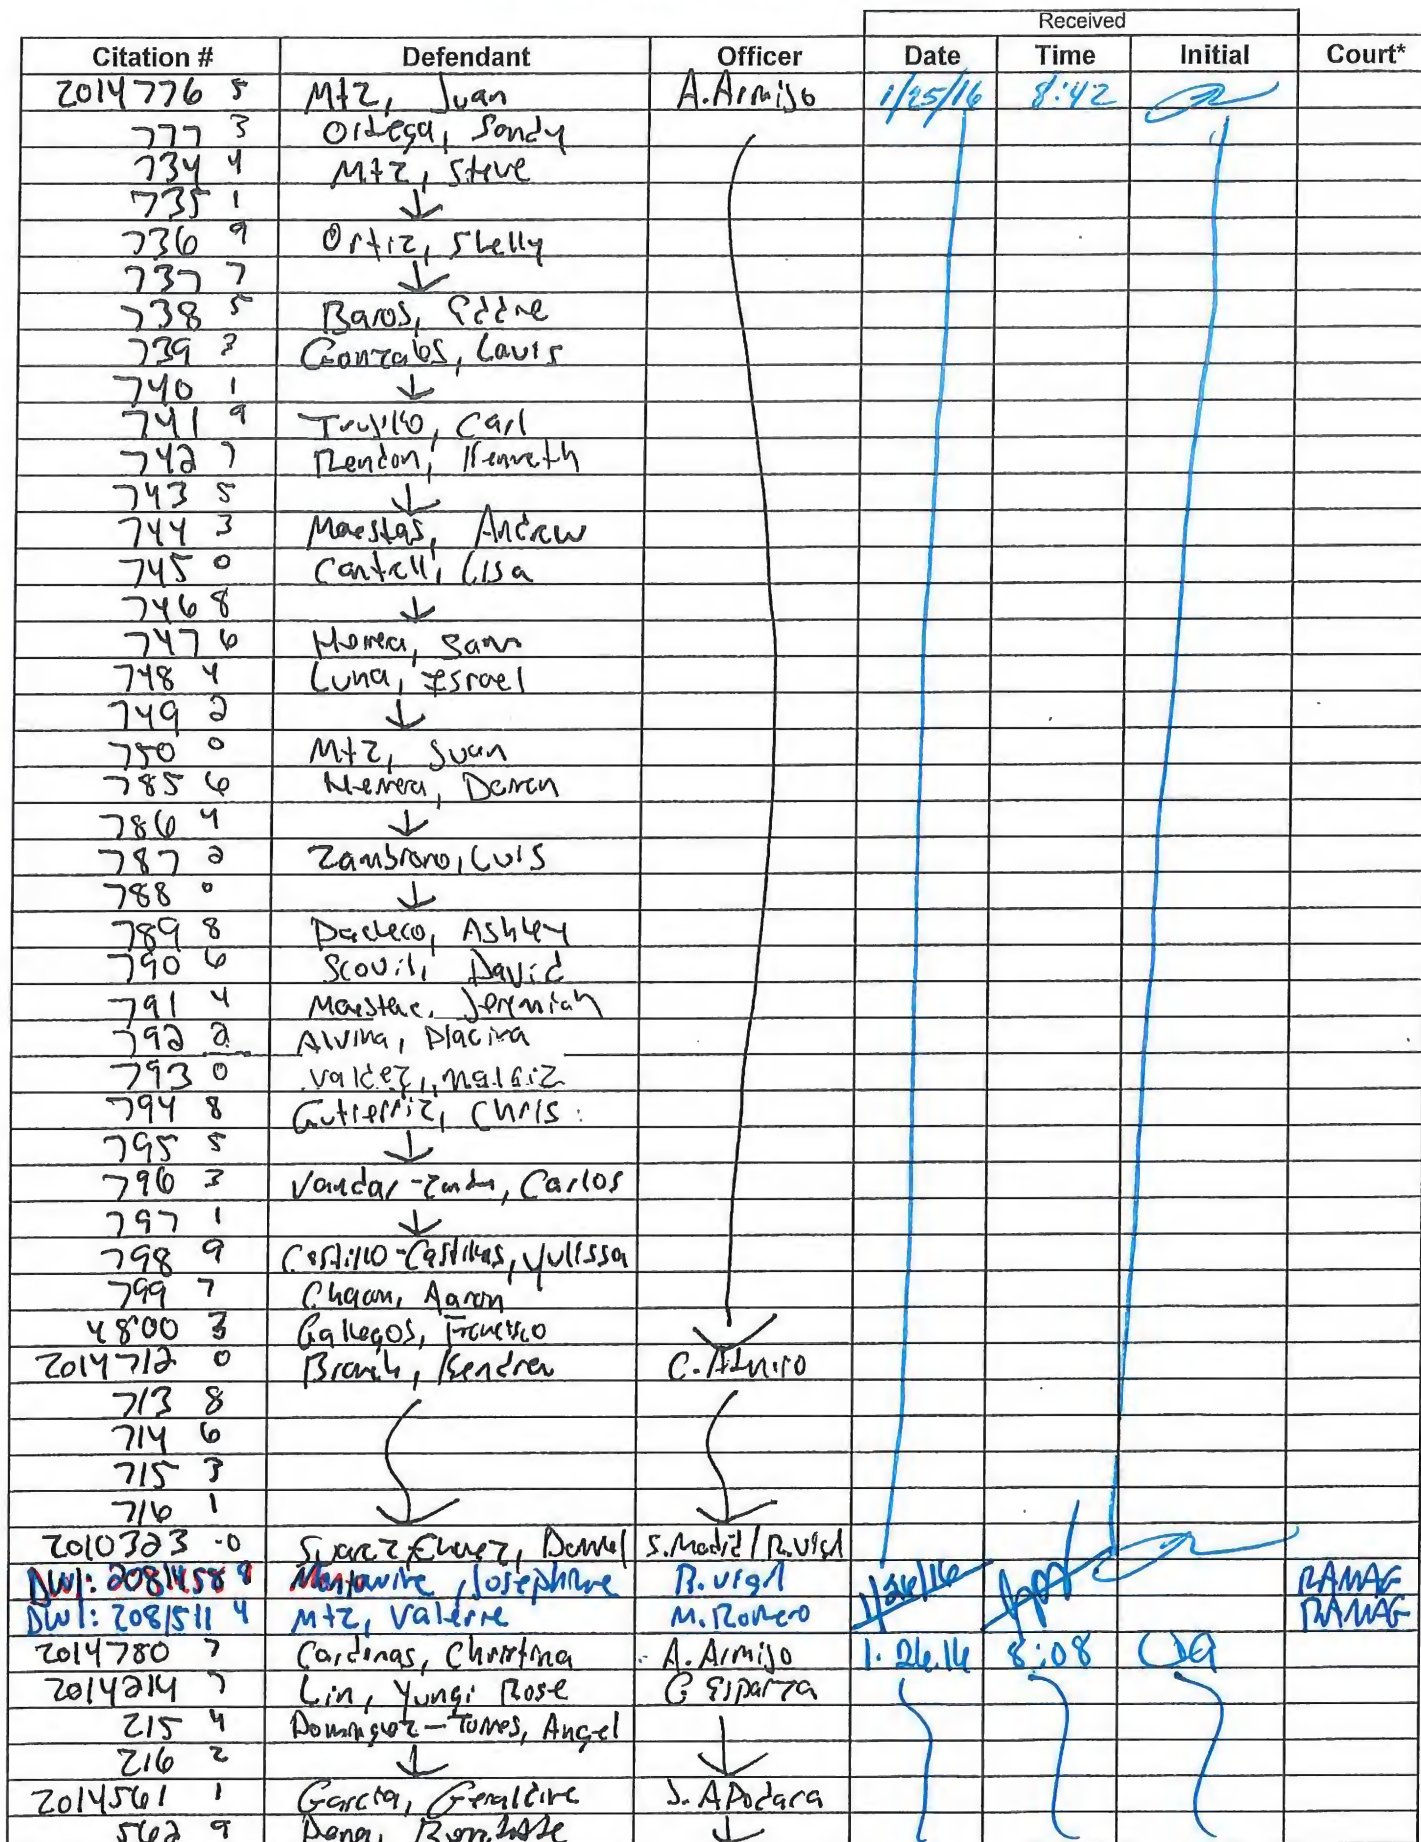 Received
Citation # Defendant Officer Date Time Initial Court*
2014776 5 Mtz, Juan A. Armijo 1/25/16 8:42
777 3 Ortega, Sandy
734 4 Mtz, Steve
735 1 ↓
736 9 Ortiz, Shelly
737 7 ↓
738 5 Baros, Eddie
739 3 Gonzales, Louis
740 1 ↓
741 9 Trujillo, Carl
742 7 Rendon, Kenneth
743 5 ↓
744 3 Maestas, Andrew
745 0 Cantrell, Lisa
746 8 ↓
747 6 Herrera, Sam
748 4 Luna, Israel
749 2 ↓
750 0 Mtz, Juan
785 6 Herrera, Darren
786 4 ↓
787 2 Zambrano, Luis
788 0 ↓
789 8 Pacheco, Ashley
790 6 Scovil, David
791 4 Maestas, Jeremiah
792 2 Alvina, Placina
793 0 Valdez,
794 8 Gutierriz, Chris
795 5 ↓
796 3 Carlos
797 1 ↓
798 9 Yulissa
799 7 Chacon, Aaron
4800 3 Gallegos, Francisco
2014712 0 Branch, Kendra C.
713 8
714 6
715 3
716 1
2010323 -0 Daniel S. Madrid / R. Vigil
DWI: 2081458 9 Josephine R. Vigil 1/26/16 RAMAG
DWI: 2081511 4 Mtz, Valerie M. Romero RAMAG
2014780 7 Cardenas, Christina A. Armijo 1.26.16 8:08
2014214 7 Lin, Yungi Rose G Esparza
215 4 Dominguez-Torres, Angel
216 2 ↓ ↓
2014561 1 Garcia, Geraldine J. Apodaca
562 9 Pena, ↓